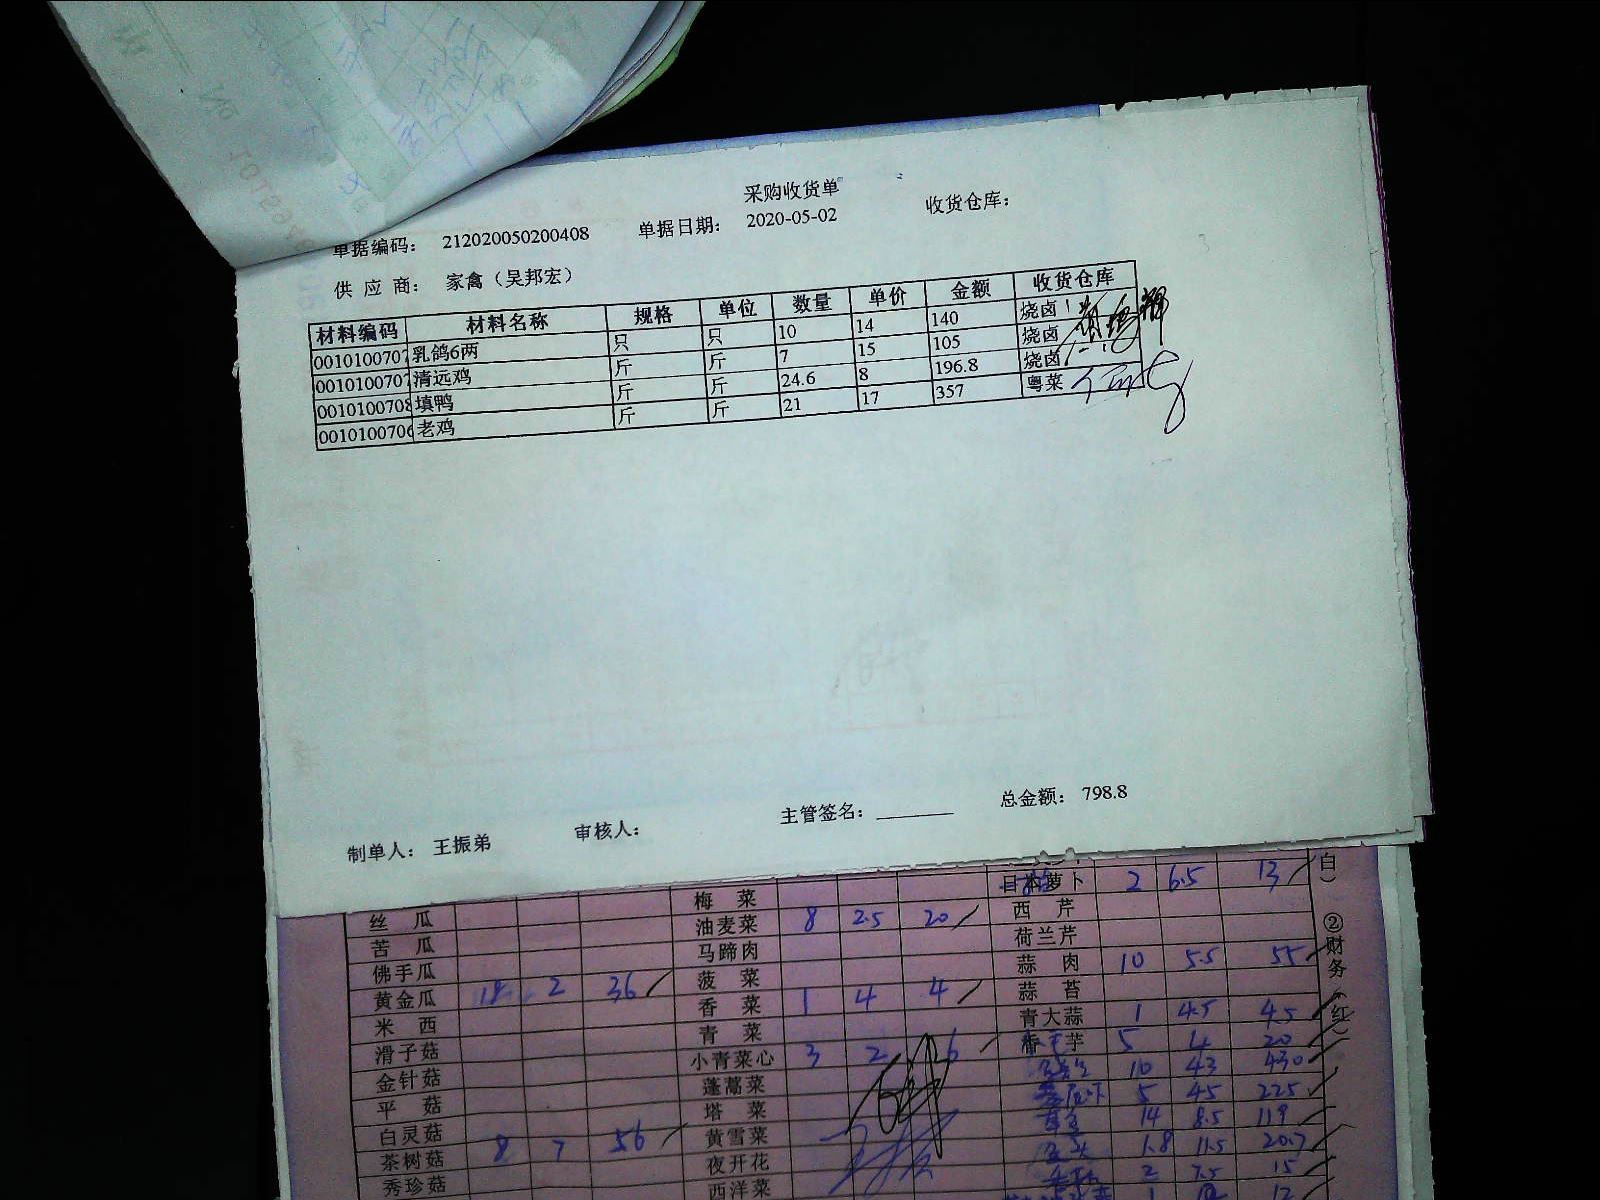 采购收货单
单据编码： 212020050200408 单据日期： 2020-05-02 收货仓库：
供 应 商： 家禽（吴邦宏）
材料编码 材料名称 规格 单位 数量 单价 金额 收货仓库
001010070 乳鸽6两 只 只 10 14 140 烧卤
001010070 清远鸡 斤 斤 7 15 105 烧卤
0010100708 填鸭 斤 斤 24.6 8 196.8 烧卤
0010100706 老鸡 斤 斤 21 17 357 粤菜
制单人： 王振弟 审核人： 主管签名： 总金额： 798.8
日本萝卜 2 6.5 13
丝 瓜 梅 菜 西 芹
苦 瓜 油麦菜 8 2.5 20 荷兰芹
佛手瓜 马蹄肉 蒜 肉 10 5.5 55
黄金瓜 18 2 36 菠 菜 蒜 苔
米 西 香 菜 1 4 4 青大蒜 1 4.5 4.5
滑子菇 青 菜 芋 5 4 20
金针菇 小青菜心 3 2 6 10 43 430
平 菇 蓬蒿菜 5 45 225
白灵菇 塔 菜 14 8.5 119
茶树菇 8 7 56 黄雪菜 1.8 11.5 20.7
秀珍菇 夜开花 2 7.5 15
西洋菜 1 12 12
白）
②财务（红）